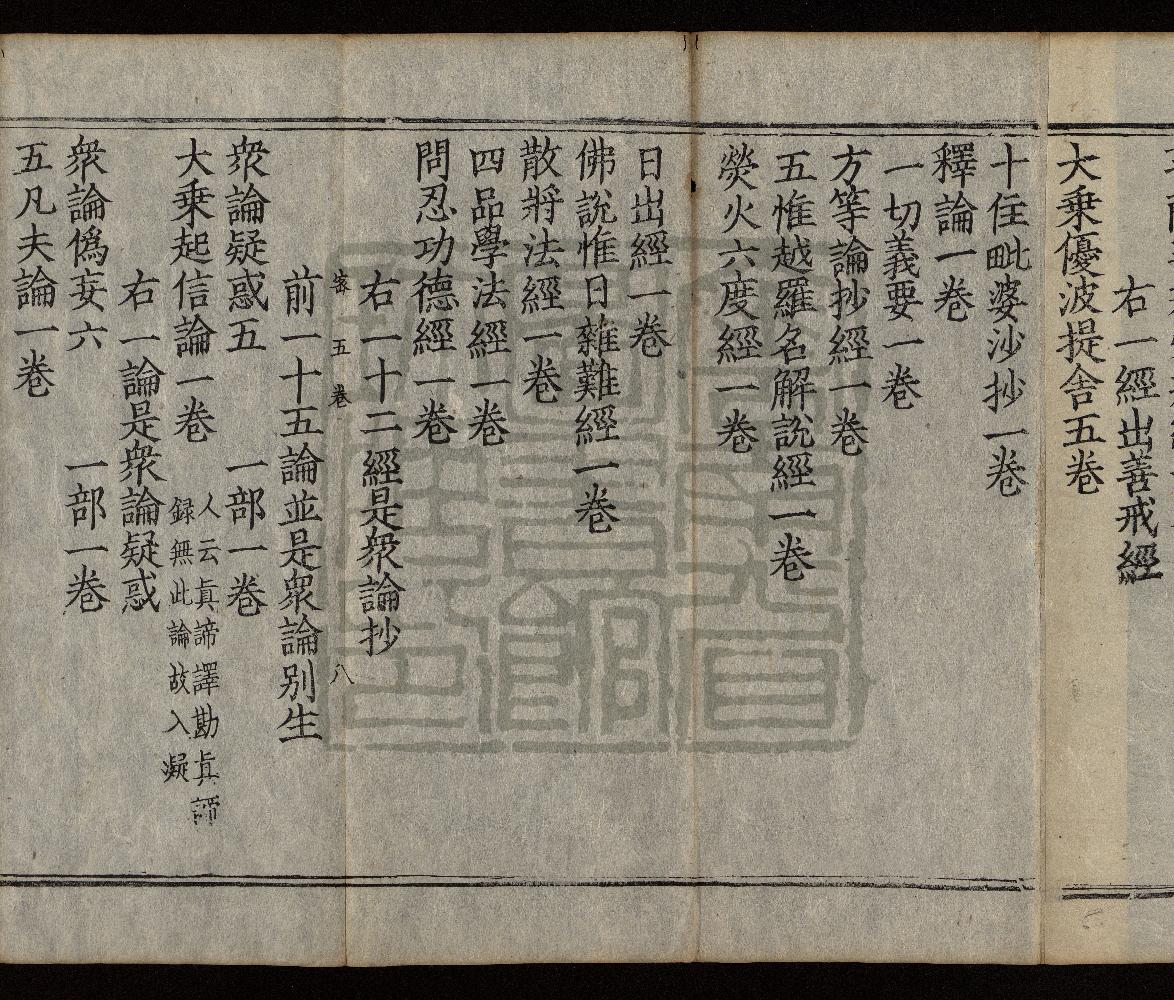 右一經出善戒經
大乗優波提舎五卷
十住毗婆沙抄一卷
釋論一卷
一切義要一卷
方等論抄經一卷
五惟越羅名解說經一卷
熒火六度經一卷
日出經一卷
佛說惟日雜難經一卷
散將法經一卷
四品學法經一卷
問忍功德經一卷
右一十二經是衆論抄
五 卷 八
前一十五論並是衆論别生
衆論疑惑五 一部一卷
大乗起信論一卷 人云眞諦譯勘眞諦
録無此論故入凝
右一論是衆論疑惑
衆論僞妄六 一部一卷
五凡夫論一卷